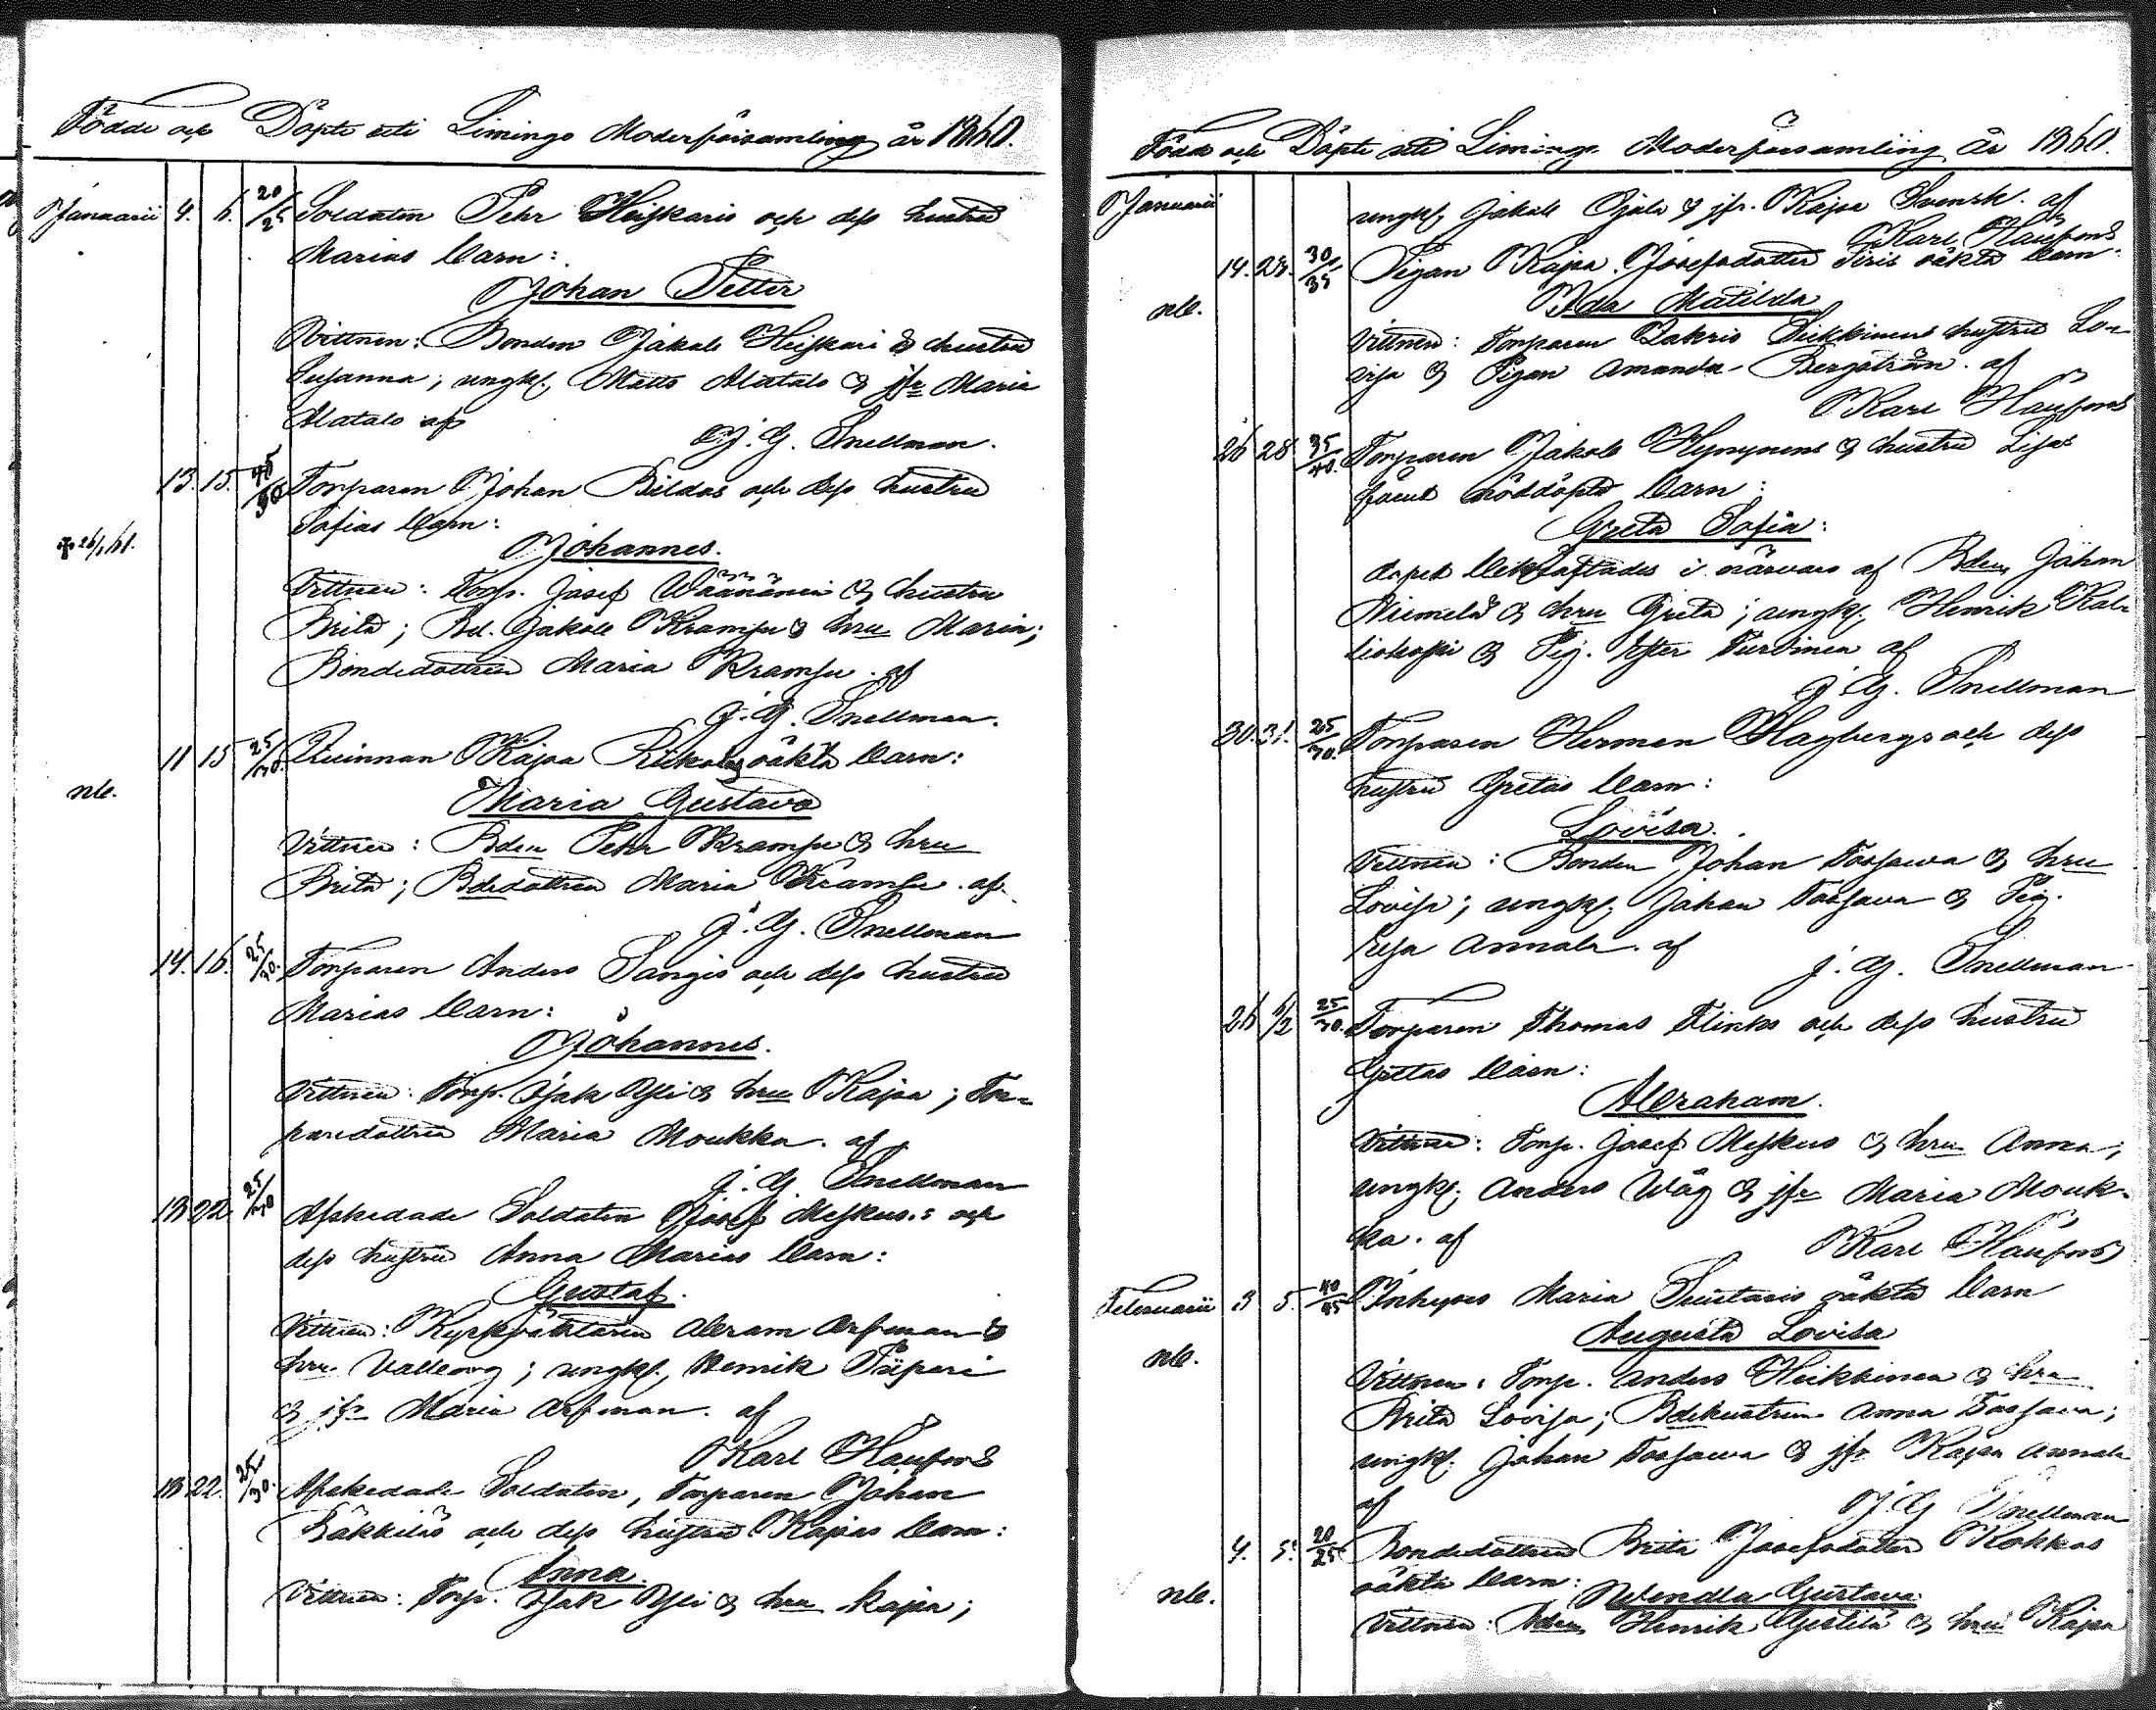 Födde och Döpte uti Limingo Moderförsamling år 1860.
Januarii 4. 6. 20/25 Soldaten Pehr Heiskaris och dess hustru
Marias barn:
Johan Petter
Vittnen: Bonden Jakob Heiskari & hustru
Susanna; ungk. Matts Alatalo & jfr Maria
Alatalo af
J. G. Snellman.
13. 15. 45/50 Torparen Johan Bildos och dess hustru
Sofias barn:
Johannes.
† 26/1 61.
Vittnen: Torp. Josef Wäänänen & hustru
Brita; Bd. Jakob Krampu & hru Maria;
Bondedottren Maria Krampu. af
J. G. Snellman.
11 15 25/30. Qvinnan Kajsa oäkta barn:
nb.
Maria Gustava
Vittnen: Bden Pehr Krampu & hru
Brita; Bdedottren Maria Krampu. af
J. G. Snellman
14. 16. 25/30. Torparen Anders Sangis och dess hustru
Marias barn:
Johannes.
Vittnen: Torp. Jak Yli & hru Kajsa; Tor-
paredottren Maria Moukka. af
J. G. Snellman
18 22 25/30 Afskedade Soldaten Josef Meskus.: och
dess hustru Anna Marias barn:
Gustaf.
Vittnen: Kyrkväktaren Abram Arfman &
hru Valborg; ungk. Henrik Piiperi
& jfr Maria Arfman. af
Karl Haufors
18 22. 25/30. Afskedade Soldaten, Torparen Johan
Räkkiläs och dess hustru Kajsas barn:
Anna.
Vittnen: Torp. Jak Yli & hru Kajsa;
Födde och Döpte uti Limingo Moderförsamling år 1860.
Januarii
ungk. Jakob Ojala & jfr. Kajsa Svensk. af
Karl Haufors
14. 24. 30/35 Pigan Kajsa Josefsdotter Piris oäkta barn.
nb.
Ida Matilda
Vittnen: Torparen Zakris Heikkinens hustru Lo-
visa & Pigan Amanda Bergström. af
Karl Haufors
26 28 35/40. Torparen Jakob Hynynens & hustru Lisas
förut nöddöpta barn:
Greta Sofia:
dopet bekräftades i närvaro af Bden Johan
Niemelä & hru Greta; ungk. Henrik Kal-
liokoski & Pig. Ester Turtinen af
J. G. Snellman
30. 31. 25/30. Torparen Herman Hagbergs och dess
hustru Gretas barn:
Lovisa.
Vittnen: Bonden Johan Tassawa & hru
Lovisa; ungk. Johan Tassawa & Pig.
Elsa Annala. af
J. G. Snellman
26 5/2 25/30. Torparen Thomas Flinks och dess hustru
Gretas barn:
Abraham.
Vittnen: Torp. Josef Meskus & hru Anna;
ungk. Anders Wäg & jfr Maria Mouk-
ka. af
Karl Haufors
Februarii 3 5. 40/45 Inhyses Maria Suutaris oäkta barn
Augusta Lovisa
nb.
Vittnen: Torp. Anders Heikkinen & hru
Brita Lovisa; Bdehustrun Anna Tassawa;
ungk. Johan Tassawa & jfr Kajsa Annala
af
J. G. Snellman
4. 5. 20/25 Bondedottren Brita Josefsdotter Kokkos
oäkta barn:
nb.
Wendla Gustava.
Vittnen: Bden Henrik & hru Kajsa